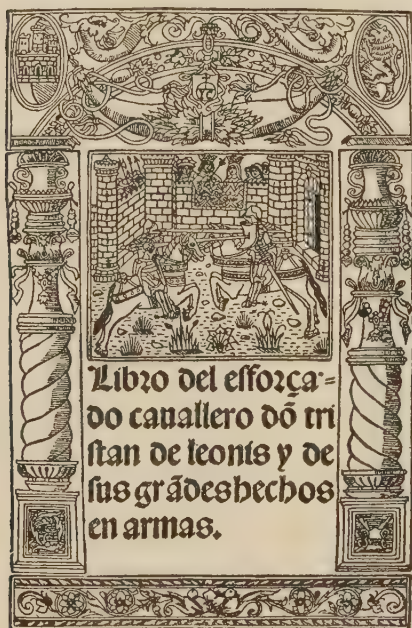 Libro del esforça-
do cauallero dõ tri
stan de leonis y de
sus grãdes hechos
en armas.